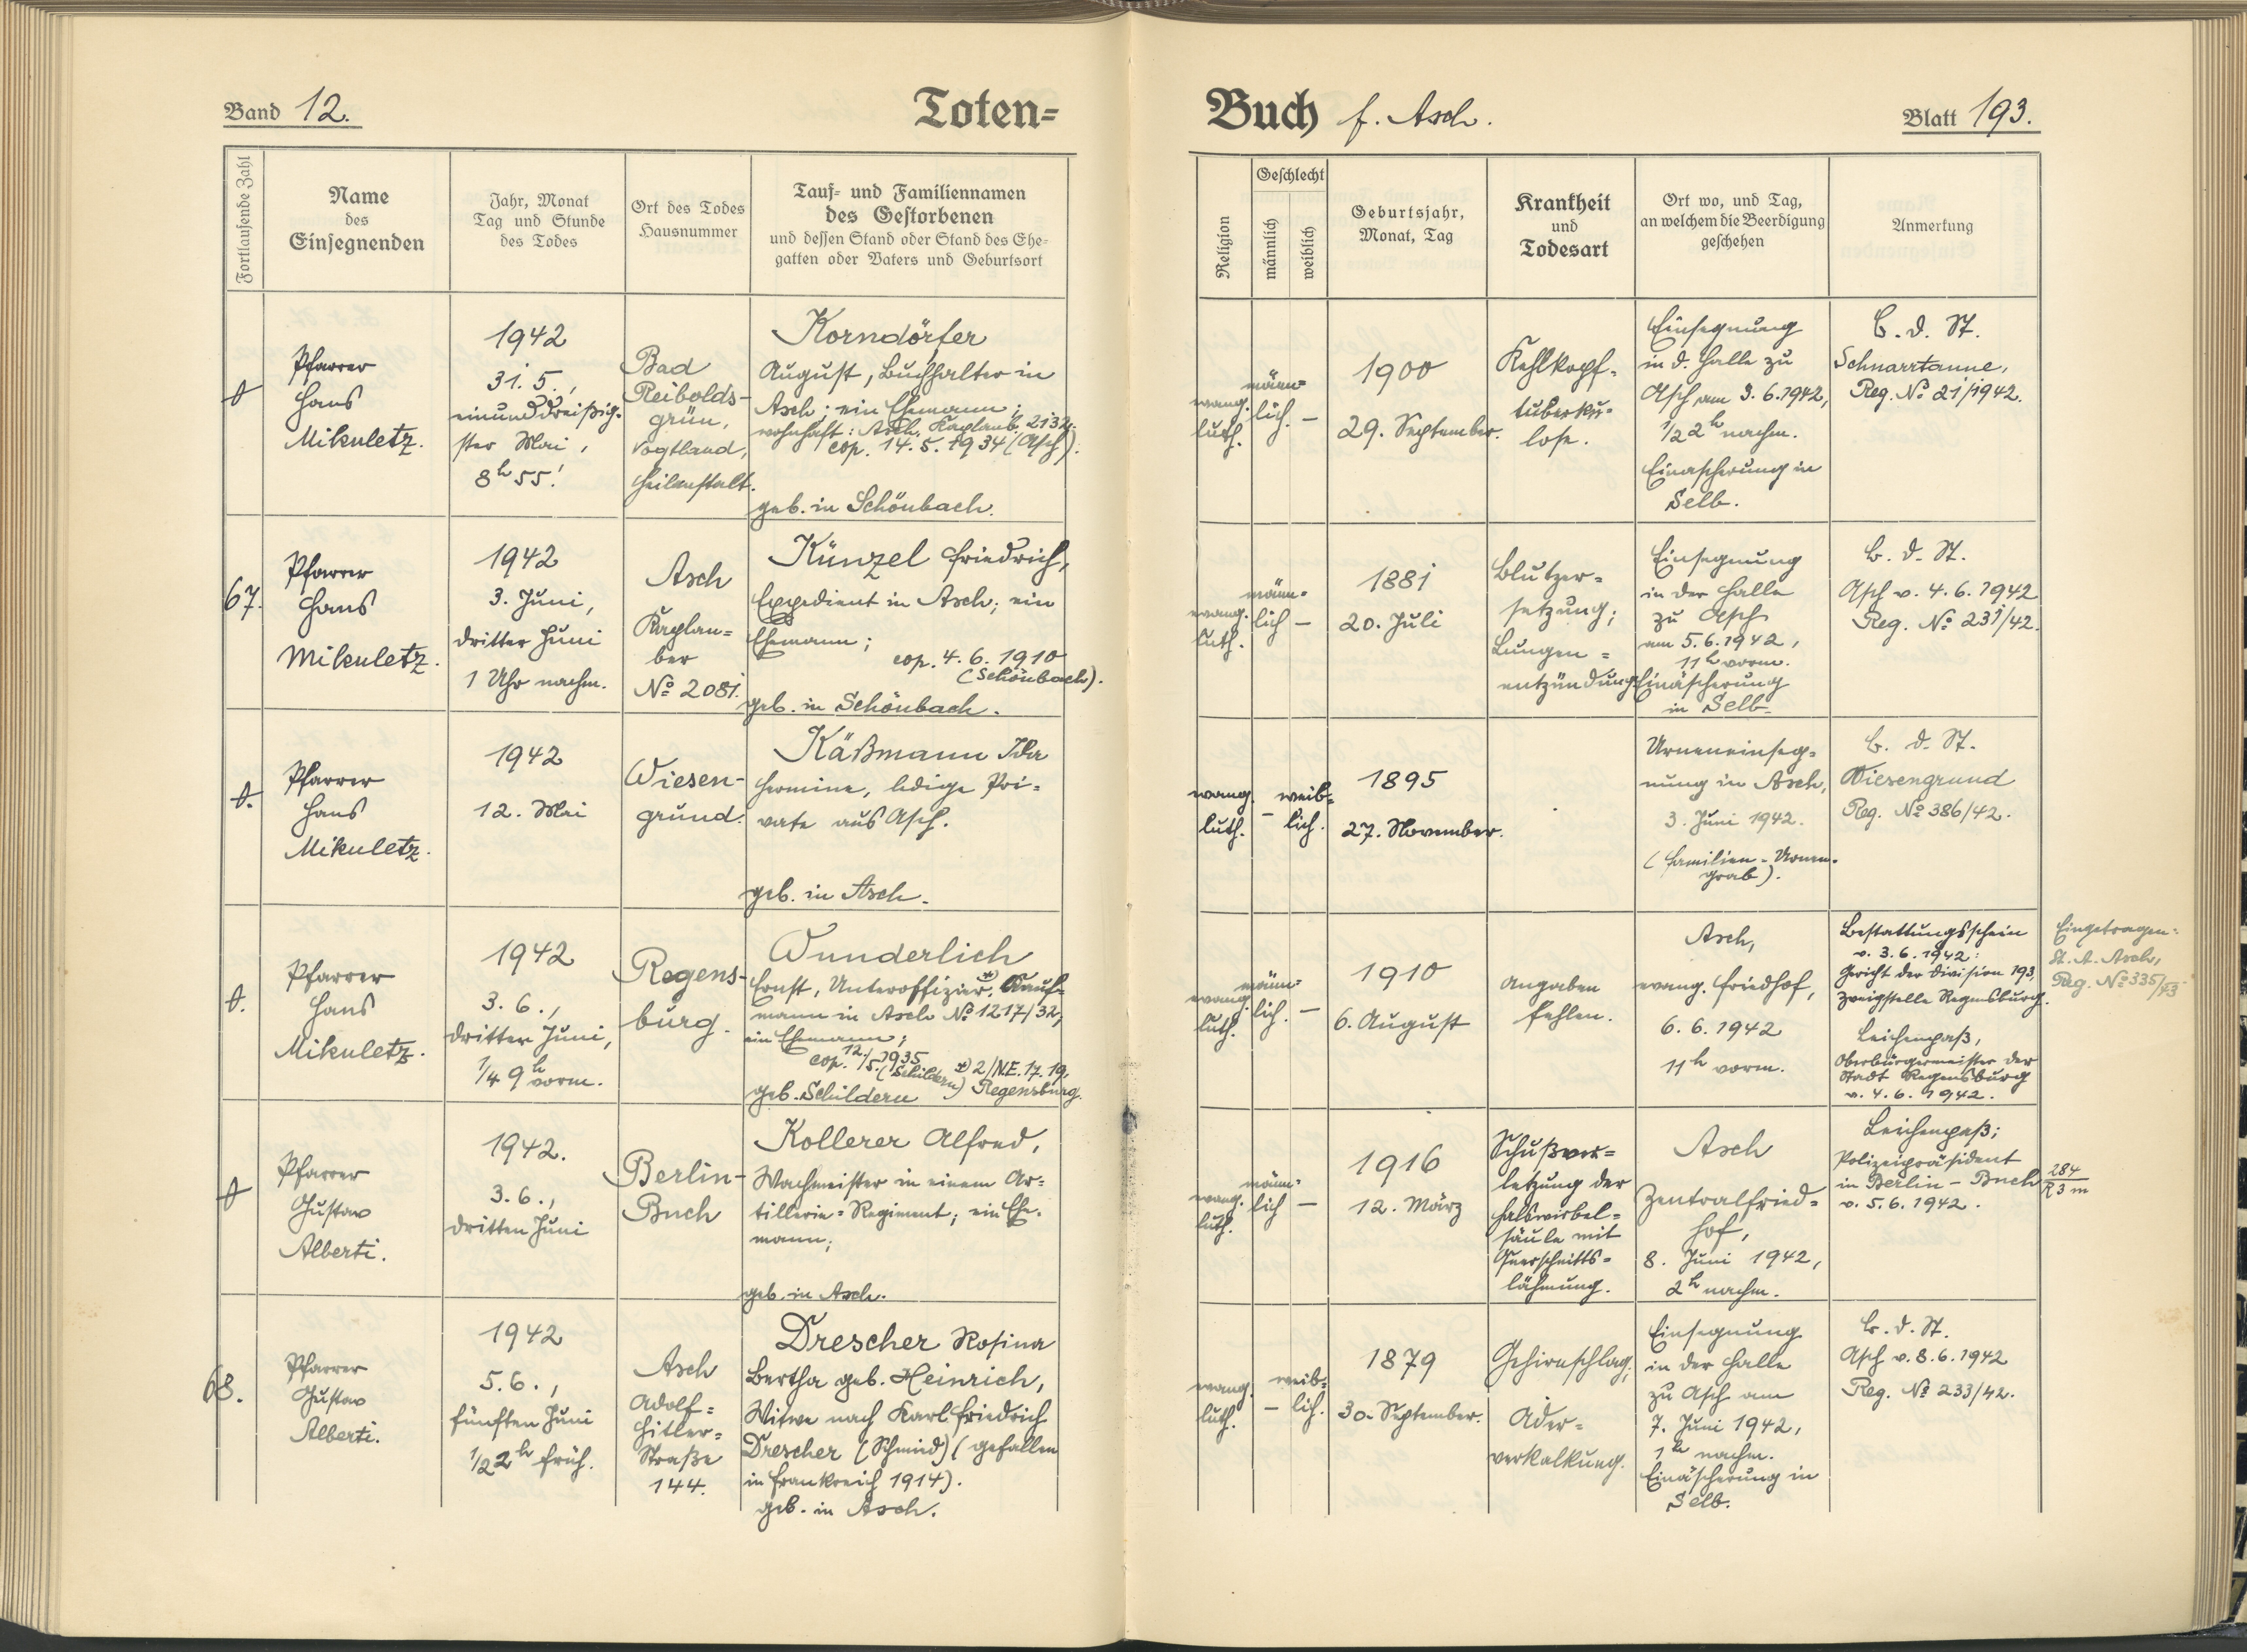 Band 12.
Toten-
Buch f. Asch.
Blatt 193.
Fortlaufende Zahl
Name
des
Einsegnenden
Jahr, Monat
Tag und Stunde
des Todes
Ort des Todes
Hausnummer
Tauf- und Familiennamen
des Gestorbenen
und dessen Stand oder Stand des Ehe-
gatten oder Vaters und Geburtsort
Religion
Geschlecht
männlich
weiblich
Geburtsjahr,
Monat, Tag
Krankheit
und
Todesart
Ort wo, und Tag,
an welchem die Beerdigung
geschehen
Anmerkung
Pfarrer
Hans
Mikuletz.
1942
31. 5.,
einunddreißig-
ster Mai,
8h 55!
Bad
Reibolds-
grün,
Vogtland,
Heilanstalt.
Korndörfer
August, Buchhalter in
Asch; ein Ehemann;
wohnhaft: Asch, Kaplanb. 2132.
cop. 14. 5. 1934 (Asch).
geb. in Schönbach.
evang.
luth.
männ-
lich. –
1900
29. September.
Kehlkopf-
tuberku-
lose.
Einsegnung
in d. Halle zu
Asch am 3. 6. 1942,
1/2 2h nachm.
Einäscherung in
Selb.
B. d. St.
Schnarrtanne,
Reg. No 21/1942.
67.
Pfarrer
Hans
Mikuletz.
1942
3. Juni,
dritter Juni
1 Uhr nachm.
Asch
Kaplan-
ber
No 2081.
Künzel Friedrich,
Expedient in Asch; ein
Ehemann;
cop. 4. 6. 1910
(Schönbach).
geb. in Schönbach.
evang.
luth.
männ-
lich –
1881
20. Juli
Blutzer-
setzung;
Lungen =
entzündung.
Einsegnung
in der Halle
zu Asch
am 5. 6. 1942,
11h vorm.
Einäscherung
in Selb.
B. d. St.
Asch v. 4. 6. 1942
Reg. No 231/42.
Pfarrer
Hans
Mikuletz.
1942
12. Mai
Wiesen-
grund.
Käßmann Ida
Hermine, ledige Pri-
vate aus Asch.
geb. in Asch.
evang.
luth.
– weib-
lich.
1895
27. November.
Urneneinseg-
nung in Asch,
3. Juni 1942.
(Familien-Urnen-
grab).
B. d. St.
Wiesengrund
Reg. No 386/42.
Pfarrer
Hans
Mikuletz.
1942
3. 6.,
dritter Juni,
1/4 9h vorm.
Regens-
burg.
Wunderlich
Ernst, Unteroffizier *), Kauf-
mann in Asch No 1217/32,
ein Ehemann;
cop. 12./5. 1935
(Schildern) *) 2/N.E. 17. 19.
geb. Schildern Regensburg.
evang.
luth.
männ-
lich. –
1910
6. August
Angaben
fehlen.
Asch,
evang. Friedhof,
6. 6. 1942
11h vorm.
Bestattungsschein
v. 3. 6. 1942:
Gericht der Division 193,
Zweigstelle Regensburg.
Leichenpaß,
Oberbürgermeister der
Stadt Regensburg
v. 4. 6. 1942.
Eingetragen:
St. A. Asch,
Reg. No 335/43
Pfarrer
Gustav
Alberti.
1942.
3. 6.,
dritten Juni
Berlin-
Buch
Kollerer Alfred,
Wachmeister in einem Ar-
tillerie-Regiment; ein Ehe-
mann;
geb. in Asch.
evang.
luth.
männ-
lich –
1916
12. März
Schußver-
letzung der
Halswirbel-
säule mit
Querschnitts-
lähmung.
Asch
Zentralfried-
hof,
8. Juni 1942,
2h nachm.
Leichenpaß;
Polizeipräsident
in Berlin – Buch
v. 5. 6. 1942.
284
R 3 m
68.
Pfarrer
Gustav
Alberti.
1942
5. 6.,
fünften Juni
1/2 2h früh.
Asch
Adolf-
Hitler-
Straße
144.
Drescher Rosina
Bertha geb. Heinrich,
Witwe nach Karl Friedrich
Drescher (Schmied) (gefallen
in Frankreich 1914).
geb. in Asch.
evang.
luth.
– weib-
lich.
1879
30. September.
Gehirnschlag;
Ader-
verkalkung.
Einsegnung
in der Halle
zu Asch am
7. Juni 1942,
1h nachm.
Einäscherung in
Selb.
B. d. St.
Asch v. 8. 6. 1942
Reg. No 233/42.